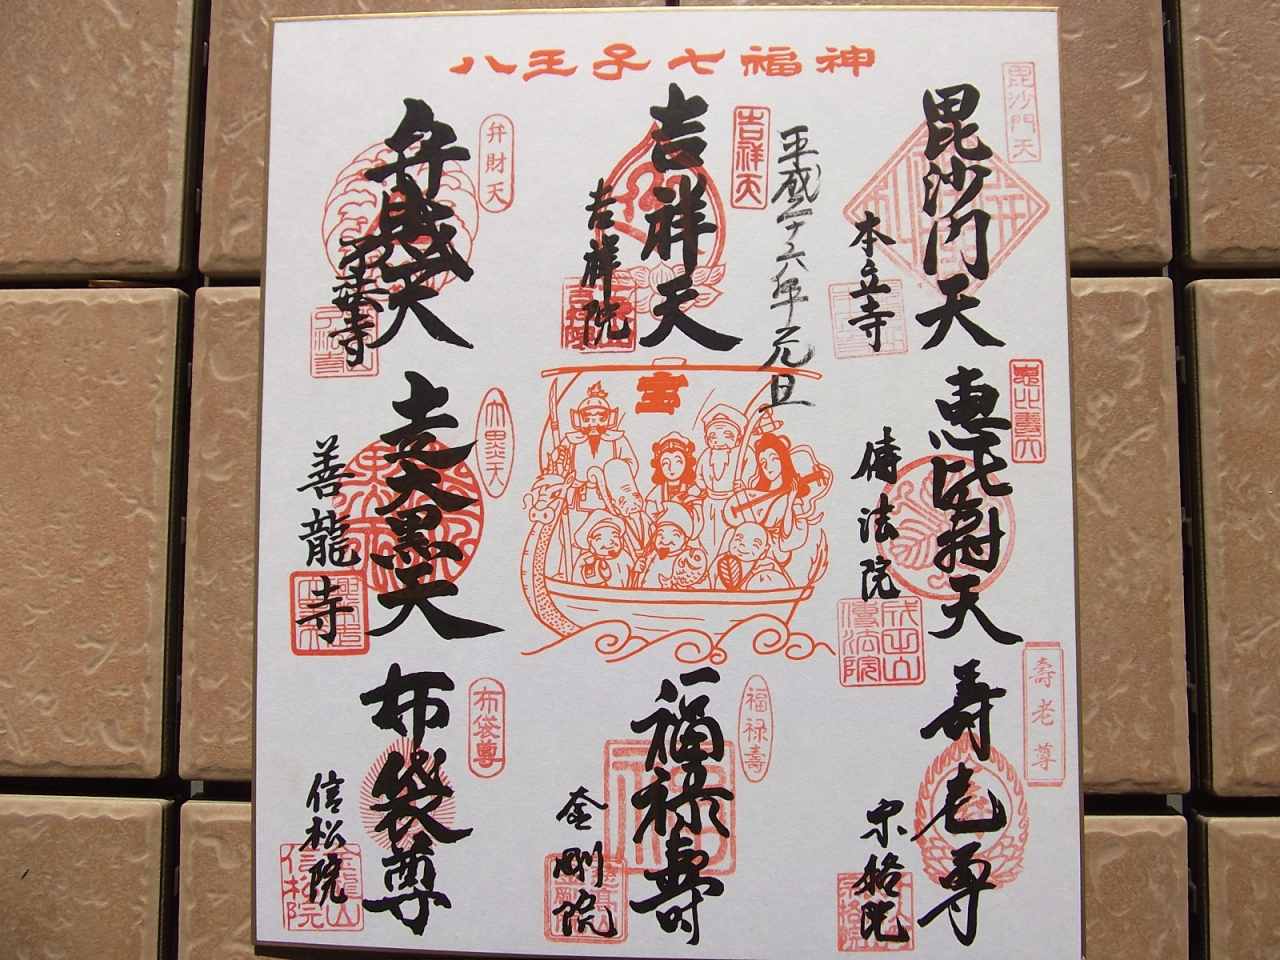 八王子七福神
毘沙門天
毘沙門天
本立寺
平成二十六年元旦
吉祥天
吉祥天
吉祥院
弁財天
弁財天
了法寺
恵比寿天
傳法院
成田山
傳法院
宝
大黒天
走大黒天
善龍寺
壽老尊
寿老尊
宗格院
宗格院
福禄壽
福禄寿
金剛院
布袋尊
布袋尊
信松院
金龍山
信松院